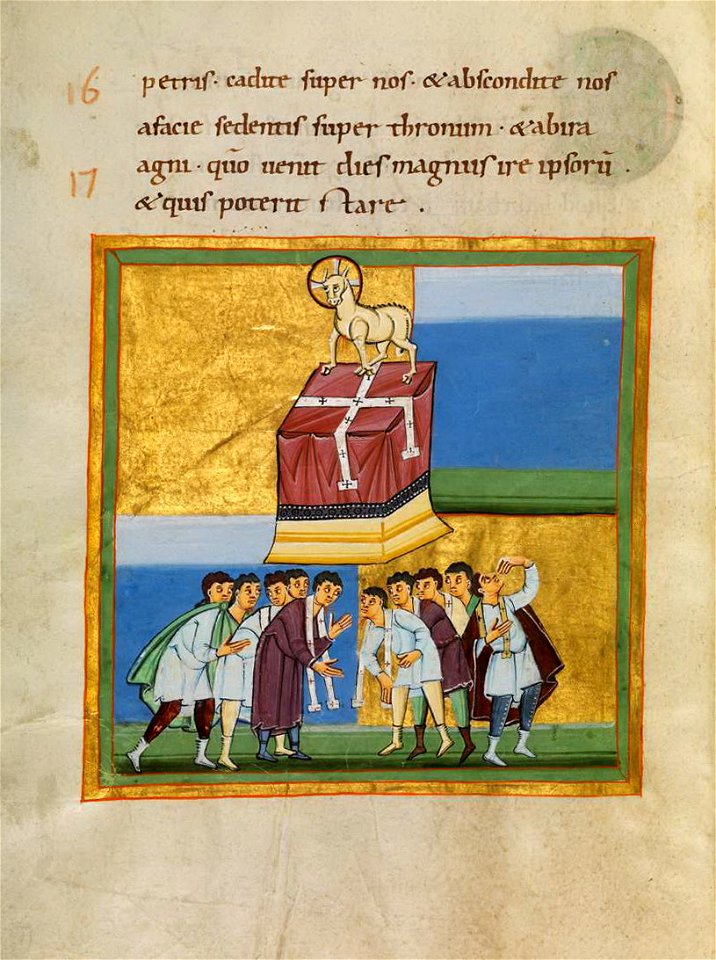 16 petris· cadite super nos· &abscondite nos
afacie sedentis super thronum· &abira
agni· quō uenit dies magnus ire ipsorū·
17 &quis poterit stare·